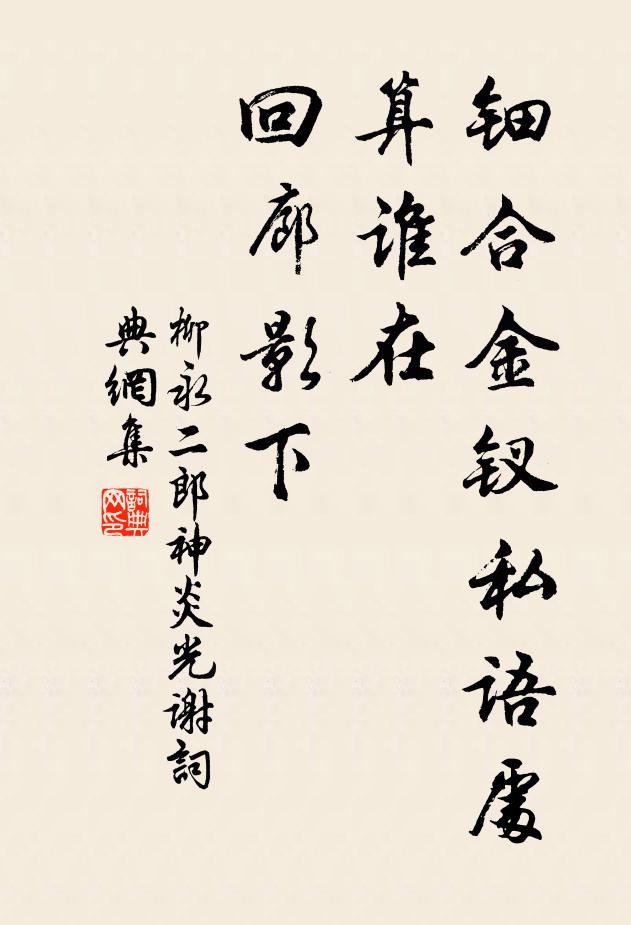 钿合金钗私语處
算谁在
回廊影下
柳永二郎神炎光谢詞
典網集
詞典網印